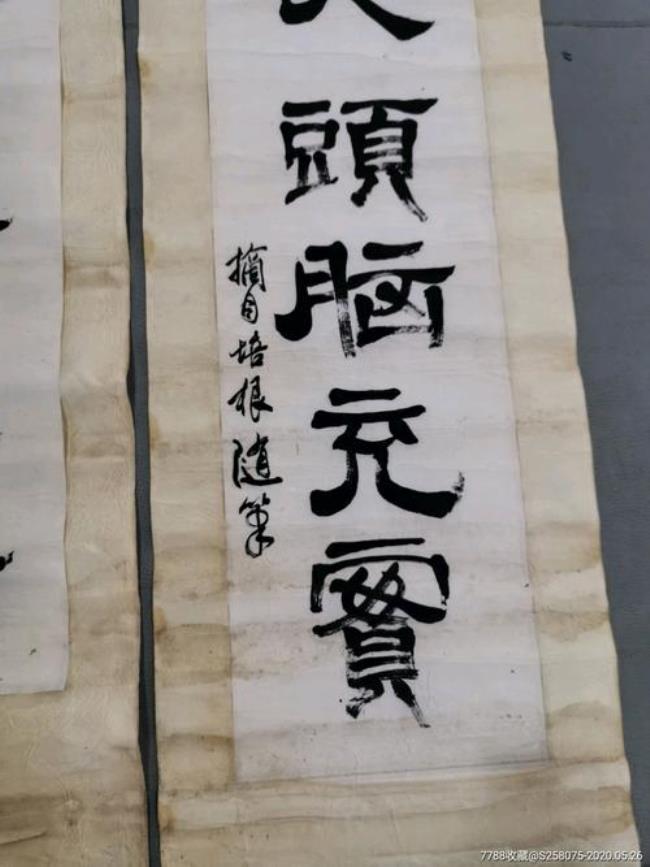 頭脑充實
摘自培根随筆
7788收藏@S258075-2020.05.26